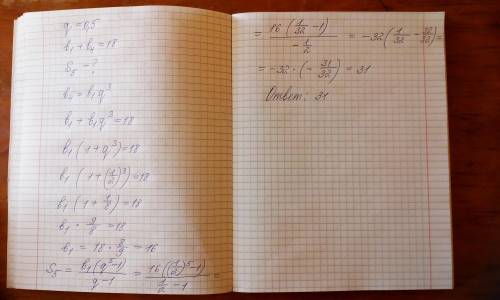 q = 0,5
b₁ + b₄ = 18
S₅ - ?
b₄ = b₁q³
b₁ + b₁q³ = 18
b₁(1+q³) = 18
b₁(1+(1/2)³) = 18
b₁(1+1/8) = 18
b₁ · 9/8 = 18
b₁ = 18 · 8/9 = 16
S₅ = b₁(q⁵-1)/(q-1) = 16((1/2)⁵-1)/(1/2-1) =
= 16(1/32-1)/(-1/2) = -32(1/32 - 32/32) =
= -32 · (-31/32) = 31
Ответ: 31